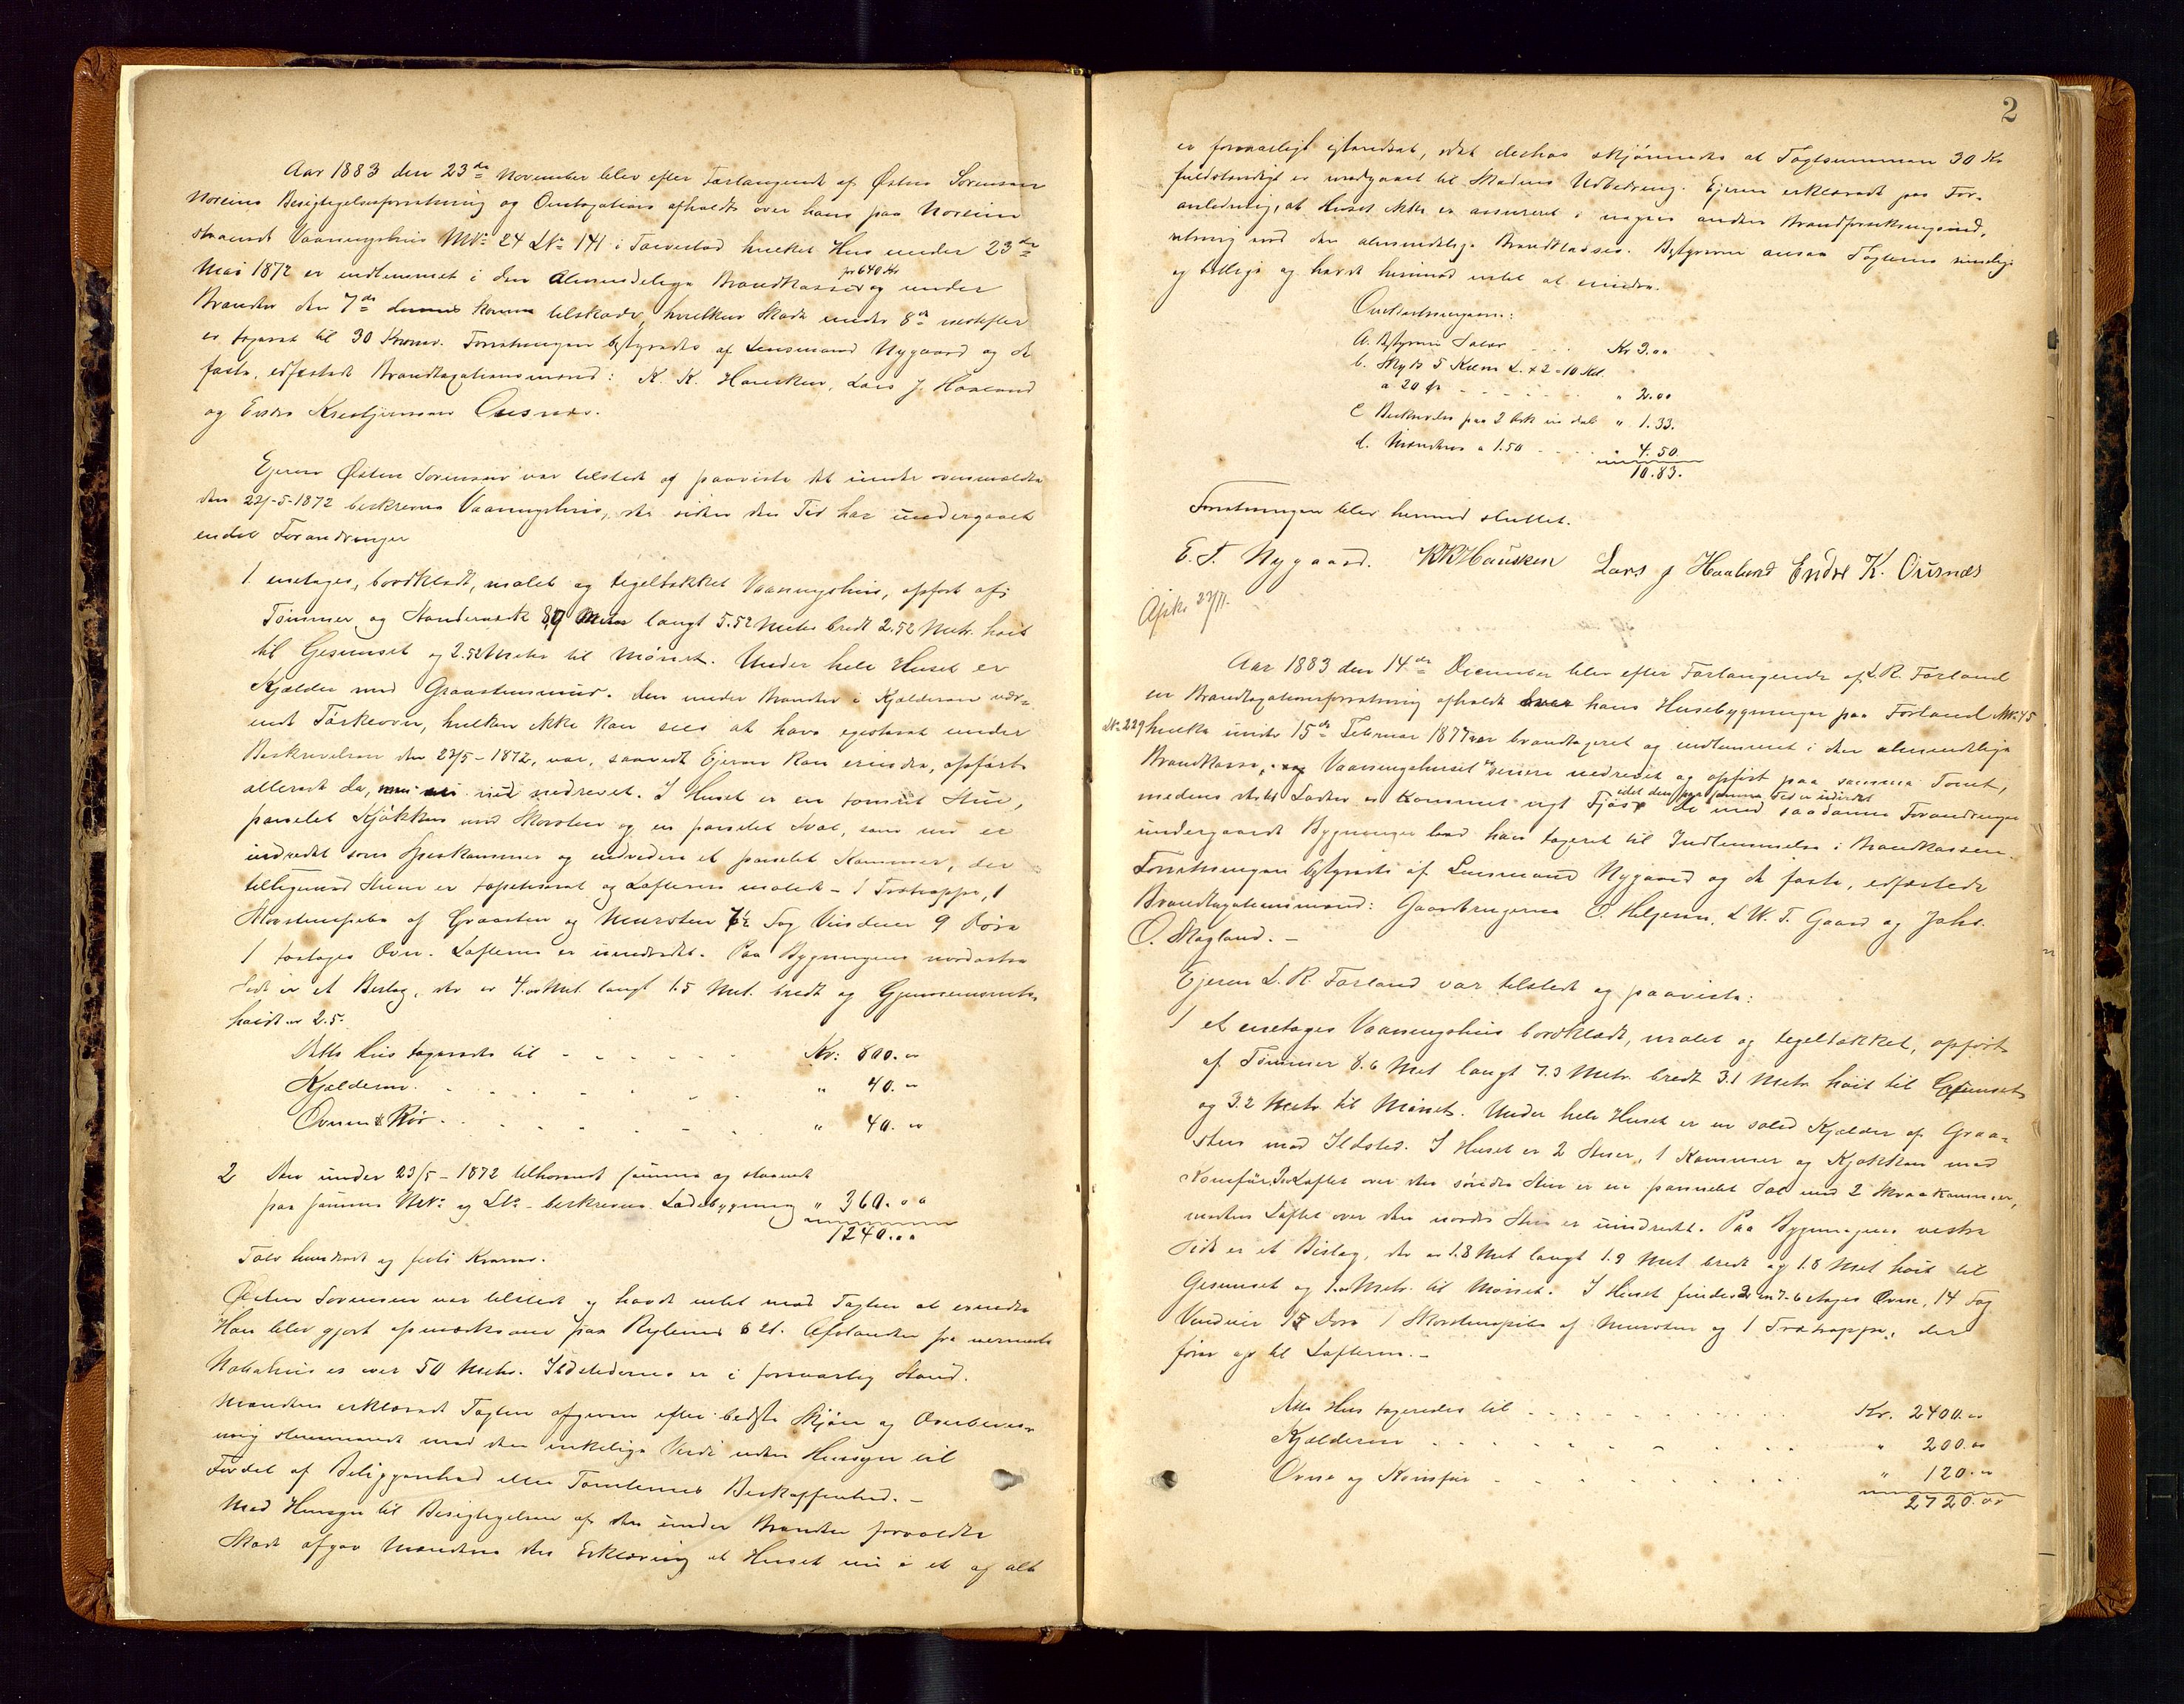 Aar 1883 den 23de November blev efter Forlangende af Østen Sørensen
Noreim Besigtigelsesforretning og Omtaxation afholdt over hans paa Noreim
staaende Vaaningshus MNo 24 LNo 141 i Torvestad hvilket Hus under 23de
Mai 1872 er indlemmet i den Almindelige Brandkasse for 640 Kr og under
Branden den 7de dennes kom tilskade, hvilken Skade under 8de næstefter
er taxeret til 30 Kroner. Forretningen bestyredes af Lensmand Nygaard og de
faste, edfæstede Brandtaxationsmænd: K. K. Hausken, Lars J. Haaland
og Endre Kristjensen Ousnes.
Ejeren Østen Sørensen var tilstede og paaviste det under ovenmeldte
den 23/-5-1872 beskrevne Vaaningshus, der siden den Tid har undergaaet
endel Forandringer
1. enetages, bordklædt, malet og tegltækket Vaaningshus, opført af
Tømmer og Stenderværk 8,9 Meter langt 5.52 Meter bredt 2.52 Metr. høit
til Gesimset og 2.52 Meter til Mønet. Under hele Huset er
Kjælder med Graastensmur. Den under Branden i Kjælderen vær-
ende Tørkeovn, hvilken ikke kan sees at have existeret under
Beskrivelsen den 23/5-1872, var, saavidt Ejeren kan erindre, opført
allerede da, men nu nedrevet. I Huset er en tømret Stue,
panelet Kjøkken med Skorsten og en panelet Sval, som nu er
indredet som Spiskammer og endvidere et panelet Kammer, der
tilligemed Stuen er tapetseret og Lofterne malede - 1 Trætrappe, 1
Skorstenspibe af Graasten og Mursten 7½ Fag Vinduer 9 Døre
1 toetages Ovn. Lofterne er uindredet. Paa Bygningens nordøstre
Side er et Bislag, der er 4.00 Met. langt 1.5 Met. bredt og Gjennemsnits
høide er 2.5.
Dette Hus taxeredes til - - - - - Kr: 800.00
Kjælderen. - - - - - " 40.00
Ovnen & Rør. - - - - - " 40.00
2 Den under 23/5-1872 tilhørende samme og staaende
paa samme MNo og LNo beskrevne Ladebygning " 360.00
1240.00
Tolv hundrede og firti Kroner.
Østen Sørensen var tilstede og havde intet mod Taxten at erindre
Han blev gjort opmærksom paa Reglernes § 21. Afstanden fra nærmeste
Nabohus er over 50 Meter. Ildstederne er i forsvarlig Stand.
Mændene erklærede Taxten afgiven efter bedste Skjøn og Overbevis-
ning stemmende med den virkelige Værdi uden Hensyn til
Fordel af Beliggenhed eller Tomternes Beskaffenhed. -
Med Hensyn til Besigtigelsen af den under Branden forvoldte
Skade afgav Mændene den Erklæring at Huset nu i et og alt
2
er forsvarligt istandsat, idet derhos skjønnedes at Taxtsummen 30 Kr
fuldstændigt er medgaaet til Skadens Udbedring. Ejeren erklærede paa For-
anledning, at Huset ikke er assureret i nogen anden Brandforsikringsind-
retning end den almindelige Brandkasse. Bestyreren ansaa Taxterne rimelige
og billige og havde herimod intet at erindre.
Omkostningerne:
a. Bestyrerens Salær - - - Kr 3.00
b. Skyds 5 Kilom L. x 2 = 10 Kil.
a 20 Ør - - - - " 2.00
c Beskrivelse paa 2 Ark in dubl " 1.33.
d. Mændene a 1.50 - - - " 4.50.
10.83.
Forretningen blev hermed sluttet.
E. T. Nygaard. KKHausken Lars J Haaland Endre K. Ousnæs
Afsk. 27/11.
Aar 1883 den 14de December blev efter Forlangende af L. R. Førland
en Brandtaxationsforretning afholdt over hans Husebygninger paa Førland MNo 45
LNo 229 hvilke under 15de Februar 1877 er brandtaxeret og indlemmet i den almindelige
Brandkasse, og Vaaningshuset er senere nedrevet og opført paa samme Tomt,
medens det til Laden er kommet nyt Fjøs idet den paa samme Tid er udvidet De med saadanne Forandringer
undergaaede Bygninger bad han taxeret til Indlemmelse i Brandkassen.
Forretningen bestyredes af Lensmand Nygaard og de faste, edfæstede
Brandtaxationsmænd: Gaardbrugerne O. Heljesen, L. W. T. Gaard og Johs.
O. Skogland. -
Ejeren L. R. Førland var tilstede og paaviste:
1 et enetages Vaaningshus bordklædt, malet og tegltækket, opført
af Tømmer 8.6 Met langt 7.3 Metr. bredt 3.1 Metr høit til Gesimset
og 3.2 Metr til Mønet. Under hele Huset er en solid Kjælder af Graa-
sten med Ildsted. I Huset er 2 Stuer, 1 Kammer og Kjøkken med
Komfur. Paa Loftet over den søndre Stue er en panelet Sal med 2 Skraakammer,
medens Loftet over den nordre Stue er uindredet. Paa Bygningens vestre
Side er et Bislag, der er 1.8 Met langt 1.9 Met bredt og 1.8 Met høit til
Gesimset og 1.00 Metr. til Mønet. I Huset findes 2 en 7-6 etages Ovne, 14 Fag
Vinduer 15 Døre 1 Skorstenspibe af Mursten og 1 Trætrappe, der
fører op til Lofterne. -
Dette Hus taxeredes til - - - - - Kr. 2400.00
Kjælderen - - - - - " 200.00
Ovne og Komfur - - - - - " 120.00
2720.00